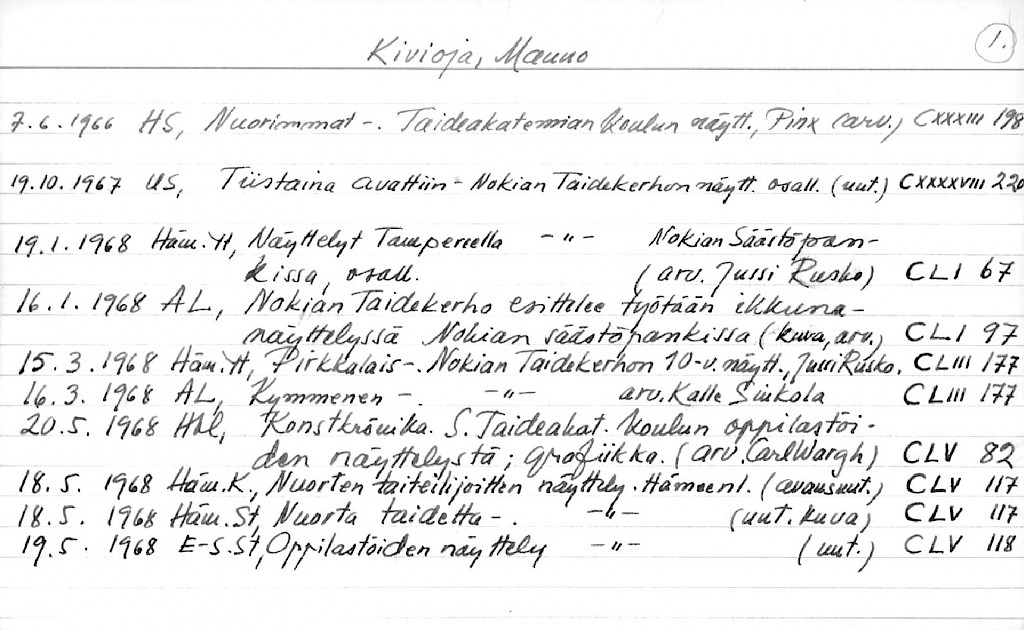 1.
Kivioja, Mauno
7.6.1966 HS, Nuorimmat -. Taideakatemian Koulun näytt., Pinx (arv.) CXXXIII 198
19.10.1967 US, Tiistaina avattiin - Nokian Taidekerhon näytt. osall. (uut.) CXXXXVIII 220
19.1.1968 Häm.YH, Näyttelyt Tampereella -"- Nokian Säästöpan-
kissa, osall. (arv. Jussi Rusko) CLI 67
16.1.1968 AL, Nokian Taidekerho esittelee työtään ikkuna-
näyttelyssä Nokian säästöpankissa (kuva, arv.) CLI 97
15.3.1968 Häm.YH, Pirkkalais-. Nokian Taidekerhon 10-v. näytt., Jussi Rusko. CLIII 177
16.3.1968 AL, Kymmenen -. -"- arv. Kalle Sinkola CLIII 177
20.5.1968 Hbl, Konstkrönika. S. Taideakat. Koulun oppilastöi-
den näyttelystä; grafiikka. (arv. Carl Wargh) CLV 82
18.5.1968 Häm.K., Nuorten taiteilijoitten näyttely. Hämeenl. (avausuut.) CLV 117
18.5.1968 Häm.St, Nuorta taidetta -. -"- (uut. kuva) CLV 117
19.5.1968 E-S.St, Oppilastöiden näyttely -"- (uut.) CLV 118